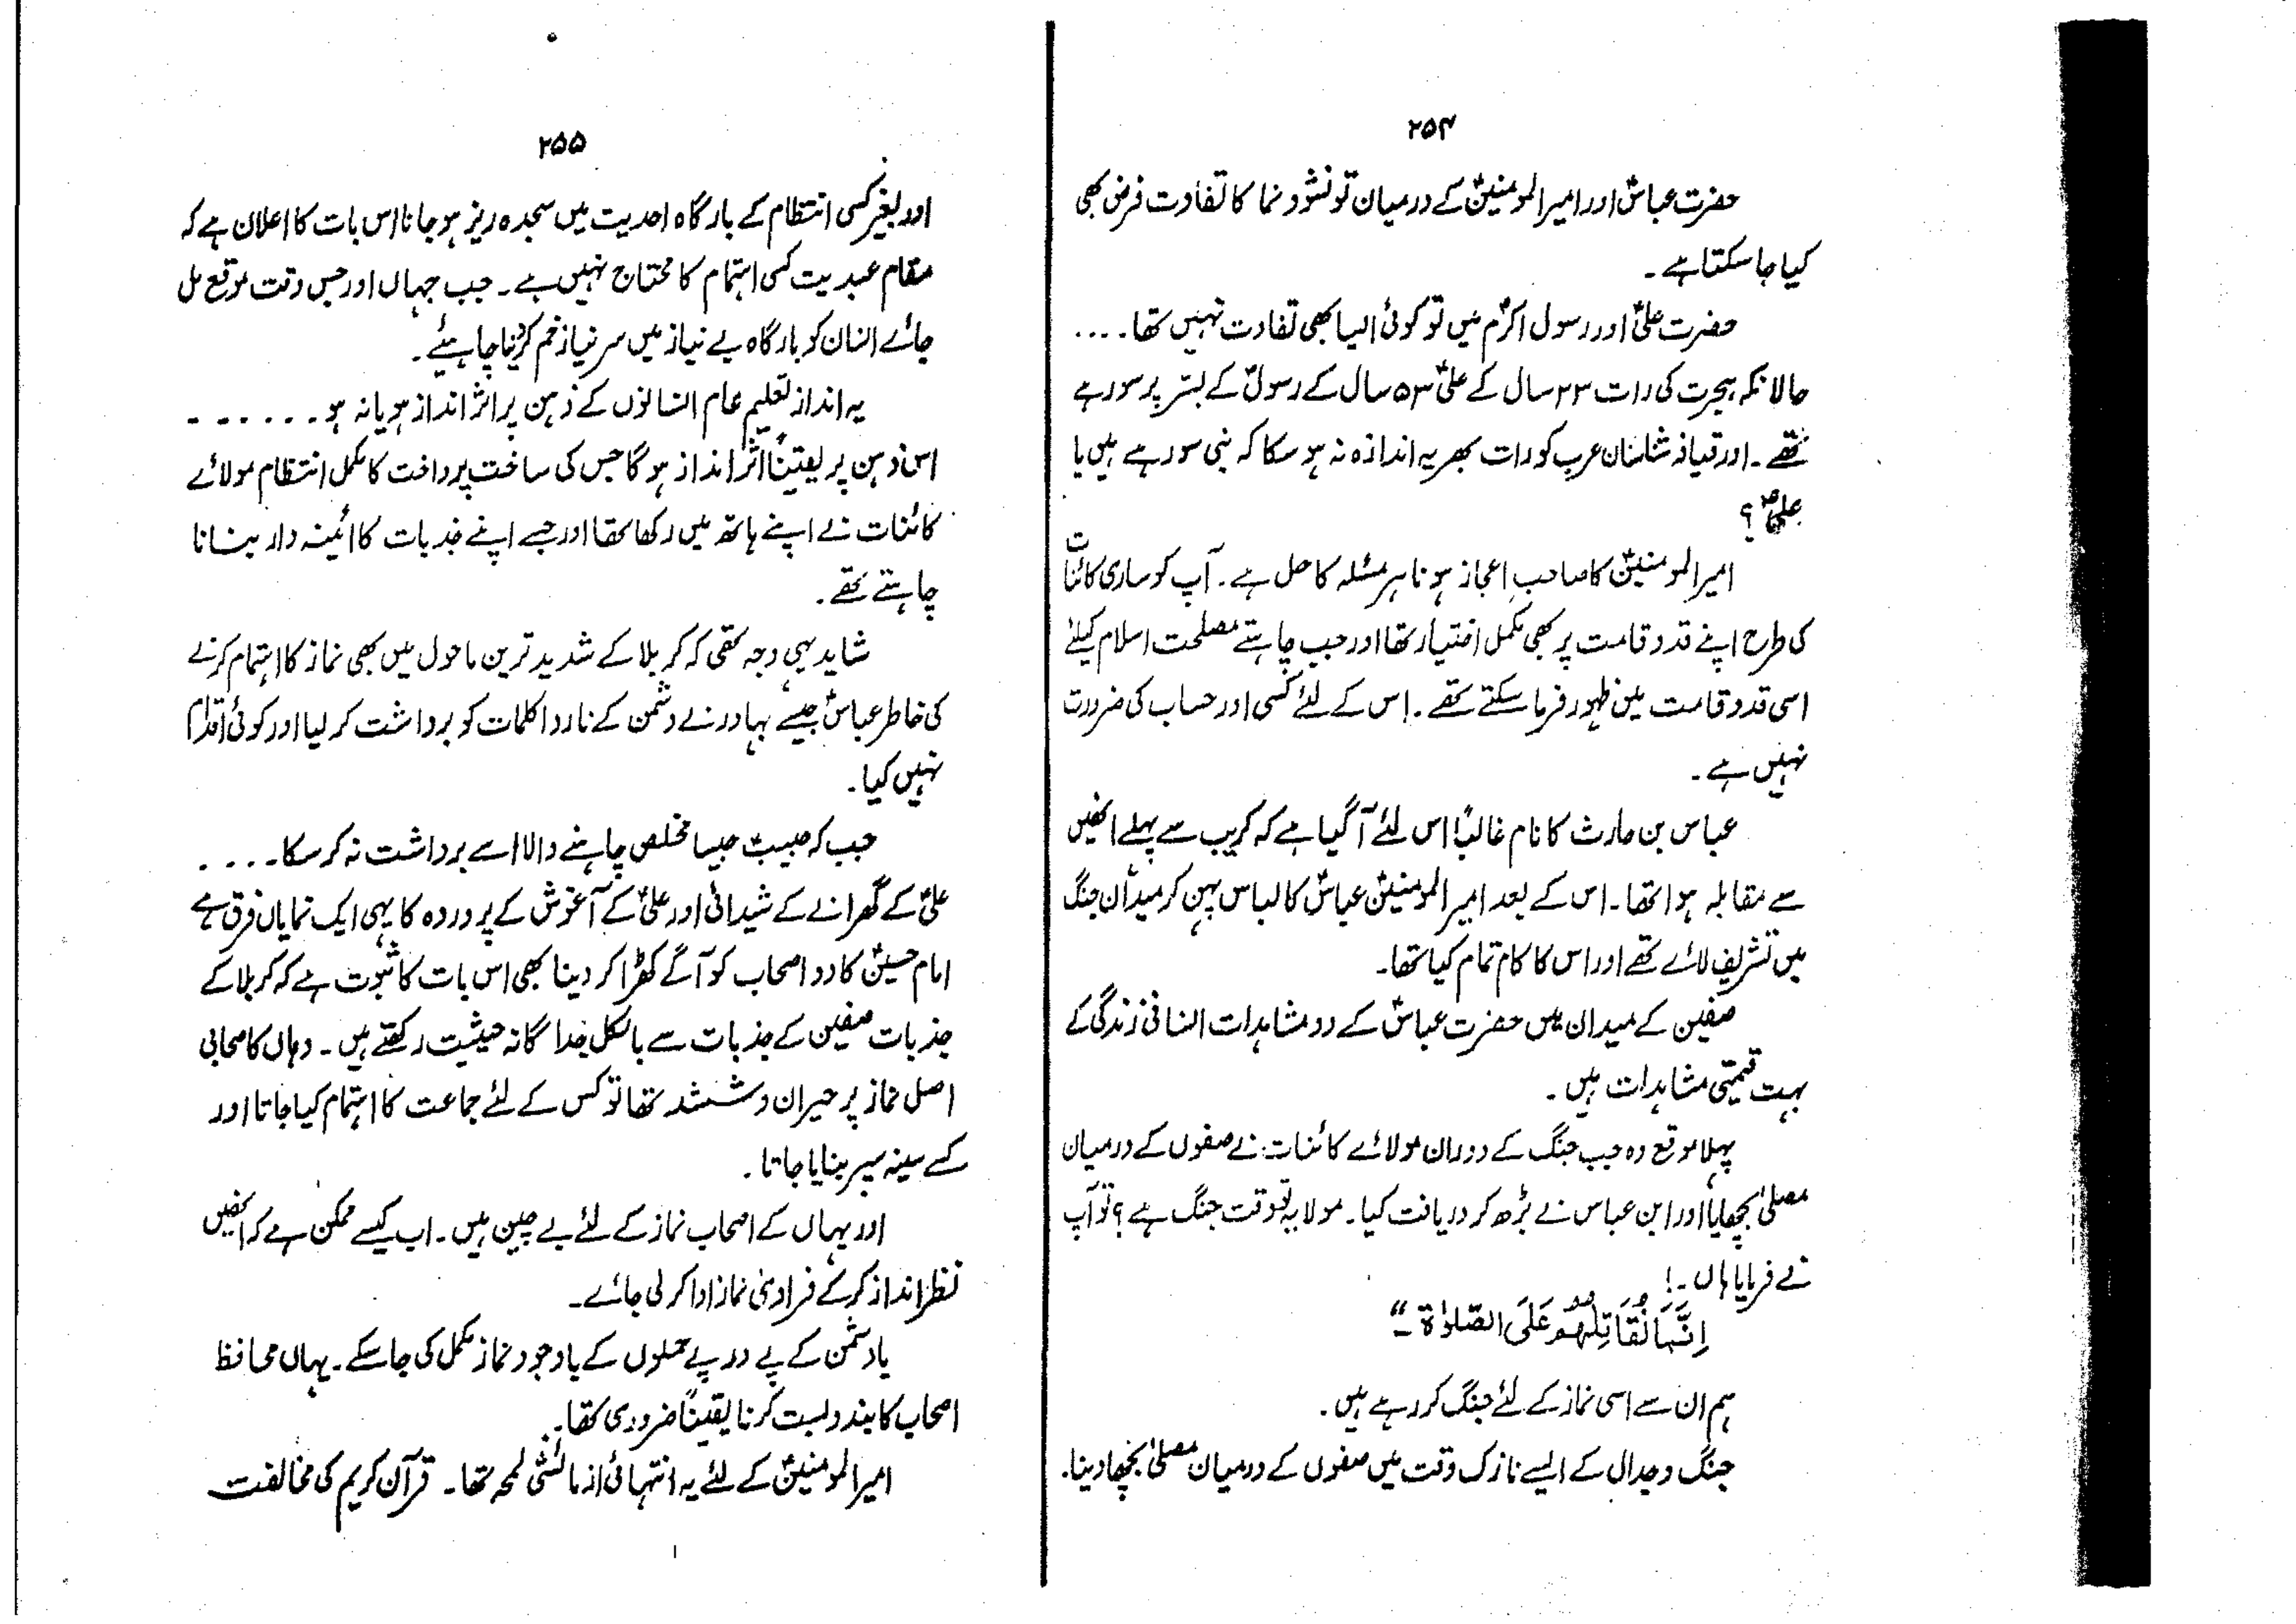 ۲۵۴
حضرت عباسؑ اور امیرالمومنینؑ کے درمیان تو نشو و نما کا تفاوت فرض بھی
کیا جا سکتا ہے۔
حضرت علیؑ اور رسول اکرمؐ میں تو کوئی ایسا بھی تفاوت نہیں تھا۔....
حالانکہ ہجرت کی رات ۲۳ سال کے علیؑ ۵۳ سال کے رسولؐ کے بستر پر سو رہے
تھے۔ اور قیافہ شناسان عرب کو رات بھر یہ اندازہ نہ ہو سکا کہ نبی سو رہے ہیں یا
علیؑ؟
امیرالمومنینؑ کا صاحبِ اعجاز ہونا ہر مسئلہ کا حل ہے۔ آپ کو ساری کائنات
کی طرح اپنے قد و قامت پر بھی مکمل اختیار تھا اور جب چاہتے مصلحت اسلام کیلئے
اسی قد و قامت میں ظہور فرما سکتے تھے۔ اس کے لئے کسی اور حساب کی ضرورت
نہیں ہے۔
عباس بن حارث کا نام غالباً اس لئے آ گیا ہے کہ کریب سے پہلے انھیں
سے مقابلہ ہوا تھا۔ اس کے بعد امیرالمومنینؑ عباسؑ کا لباس پہن کر میدان جنگ
میں تشریف لائے تھے اور اس کا کام تمام کیا تھا۔
صفین کے میدان میں حضرت عباسؑ کے دو مشاہدات انسانی زندگی کے
بہت قیمتی مشاہدات ہیں۔
پہلا موقع وہ جب جنگ کے دوران مولائے کائنات نے صفوں کے درمیان
مصلیٰ بچھایا اور ابن عباس نے بڑھ کر دریافت کیا۔ مولا یہ تو وقت جنگ ہے؟ تو آپ
نے فرمایا ہاں۔!
اِنَّمَا نُقَاتِلُهُمْ عَلَی الصَّلوٰۃ۔"
ہم ان سے اسی نماز کے لئے جنگ کر رہے ہیں۔
جنگ و جدال کے ایسے نازک وقت میں صفوں کے درمیان مصلیٰ بچھا دینا۔
۲۵۵
اور بغیر کسی انتظام کے بارگاہ احدیت میں سجدہ ریز ہو جانا اس بات کا اعلان ہے کہ
مقام عبدیت کسی اہتمام کا محتاج نہیں ہے۔ جب جہاں اور جس وقت موقع مل
جائے انسان کو بارگاہ بے نیاز میں سر نیاز خم کر دینا چاہیئے۔
یہ انداز تعلیم عام انسانوں کے ذہن پر اثر انداز ہو یا نہ ہو۔......
اس ذہن پر یقیناً اثر انداز ہوگا جس کی ساخت پرداخت کا مکمل انتظام مولائے
کائنات نے اپنے ہاتھ میں رکھا تھا اور جسے اپنے جذبات کا آئینہ دار بنانا
چاہتے تھے۔
شاید یہی وجہ تھی کہ کربلا کے شدید ترین ماحول میں بھی نماز کا اہتمام کرنے
کی خاطر عباسؑ جیسے بہادر نے دشمن کے ناروا کلمات کو برداشت کر لیا اور کوئی اقدام
نہیں کیا۔
جب کہ حبیبؑ جیسا مخلص چاہنے والا اسے برداشت نہ کر سکا۔....
علیؑ کے گھرانے کے شیدائی اور علیؑ کے آغوش کے پروردہ کا یہی ایک نمایاں فرق ہے
امام حسینؑ کا دو اصحاب کو آگے کھڑا کر دینا بھی اس بات کا ثبوت ہے کہ کربلا کے
جذبات صفین کے جذبات سے بالکل جداگانہ حیثیت رکھتے ہیں۔ وہاں کا صحابی
اصل نماز پر حیران و ششدر تھا تو کس کے لئے جماعت کا اہتمام کیا جاتا اور
کسے سینہ سپر بنایا جاتا۔
اور یہاں کے اصحاب نماز کے لئے بے چین ہیں۔ اب کیسے ممکن ہے کہ انھیں
نظر انداز کر کے فرادیٰ نماز ادا کر لی جائے۔
یا دشمن کے پے در پے حملوں کے باوجود نماز مکمل کی جا سکے۔ یہاں محافظ
اصحاب کا بندوبست کرنا یقیناً ضروری تھا۔
امیرالمومنینؑ کے لئے یہ انتہائی آزمائشی لمحہ تھا۔ قرآن کریم کی مخالفت